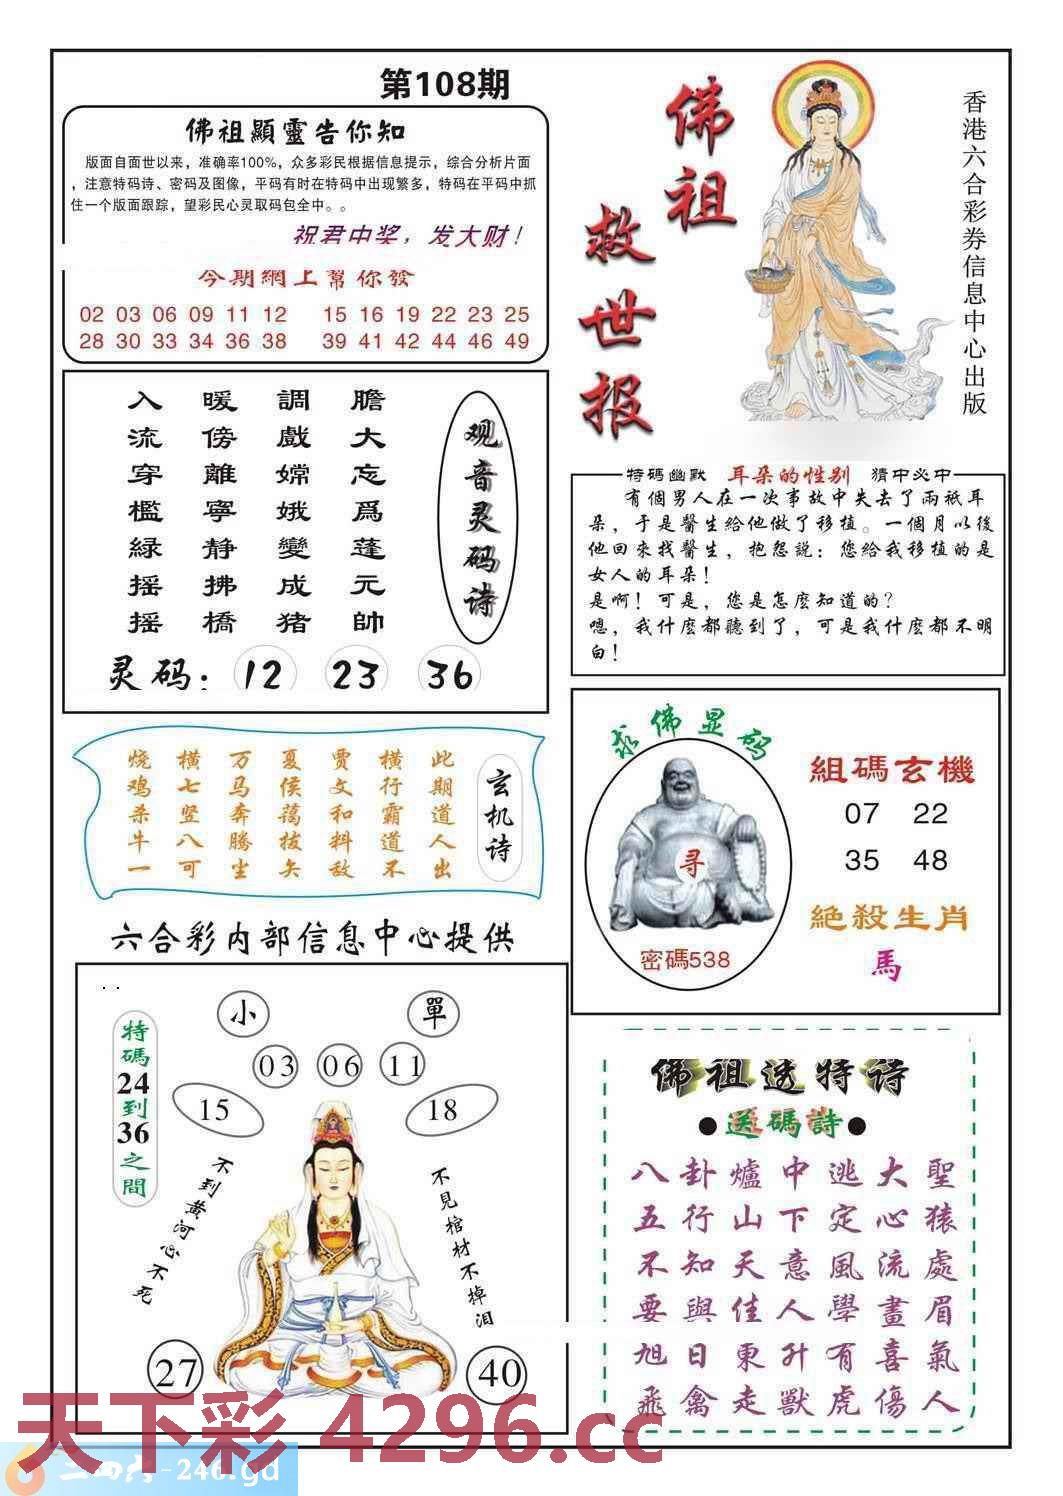 第108期
佛祖顯靈告你知
版面自面世以来，准确率100%，众多彩民根据信息提示，综合分析片面
，注意特码诗、密码及图像，平码有时在特码中出现繁多，特码在平码中抓
住一个版面跟踪，望彩民心灵取码包全中。。
祝君中奖，发大财！
今期網上幫你發
02 03 06 09 11 12 15 16 19 22 23 25
28 30 33 34 36 38 39 41 42 44 46 49
佛祖
救世报
香港六合彩券信息中心出版
观音灵码诗
膽大忘爲蓬元帥
調戲嫦娥變成猪
暖傍離寧静拂橋
入流穿檻緑摇摇
灵码：12 23 36
特碼幽默 耳朵的性别 猜中必中
有個男人在一次事故中失去了兩祇耳
朵，于是醫生給他做了移植。一個月以後
他回來找醫生，抱怨説：您給我移植的是
女人的耳朵！
是啊！可是，您是怎麽知道的？
嗯，我什麽都聽到了，可是我什麽都不明
白！
玄机诗
此期道人出
横行霸道不
贾文和料敌
夏侯蔼拔矢
万马奔腾生
横七竖八可
烧鸡杀牛一
求佛显码
寻
密碼538
組碼玄機
07 22
35 48
絕殺生肖
馬
六合彩内部信息中心提供
小
單
03 06 11
15
18
特碼24到36之間
不到黄河心不死
不見棺材不掉泪
27
40
佛祖透特诗
●送碼詩●
八卦爐中逃大聖
五行山下定心猿
不知天意風流處
要與佳人學畫眉
旭日東升有喜氣
飛禽走獸虎傷人
天下彩 4296.cc
二四六-246.gd